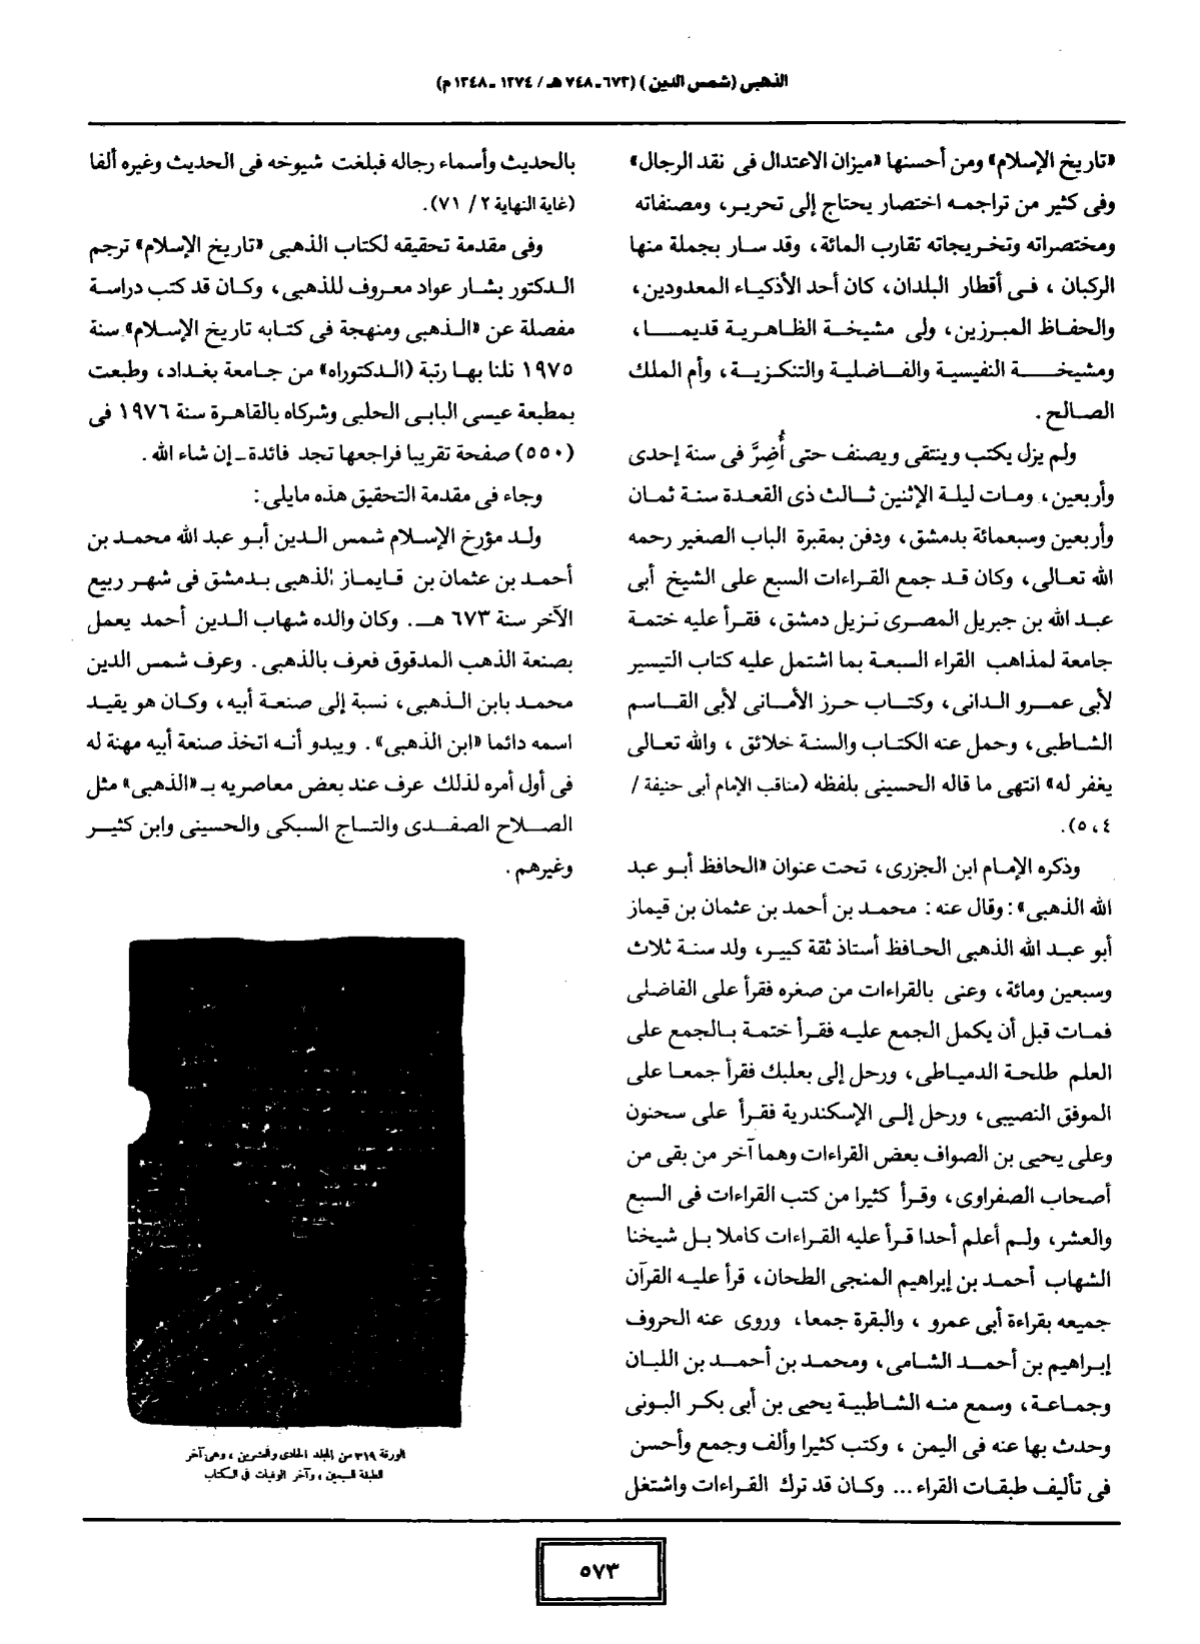 الذهبى (شمس الدين) (٦٧٣ـ٧٤٨ هـ / ١٢٧٤ ـ ١٣٤٨ م)
«تاريخ الإسلام» ومن أحسنها «ميزان الاعتدال فى نقد الرجال»
وفى كثير من تراجمه اختصار يحتاج إلى تحرير، ومصنفاته
ومختصراته وتخريجاته تقارب المائة، وقد سار بجملة منها
الركبان ، فى أقطار البلدان، كان أحد الأذكياء المعدودين،
والحفاظ المبرزين، ولى مشيخة الظاهرية قديما،
ومشيخة النفيسية والفاضلية والتنكزية، وأم الملك
الصالح .
ولم يزل يكتب وينتقى ويصنف حتى أُضِرَّ فى سنة إحدى
وأربعين، ومات ليلة الإثنين ثالث ذى القعدة سنة ثمان
وأربعين وسبعمائة بدمشق، ودفن بمقبرة الباب الصغير رحمه
الله تعالى، وكان قد جمع القراءات السبع على الشيخ أبى
عبد الله بن جبريل المصرى نزيل دمشق، فقرأ عليه ختمة
جامعة لمذاهب القراء السبعة بما اشتمل عليه كتاب التيسير
لأبى عمرو الدانى، وكتاب حرز الأمانى لأبى القاسم
الشاطبى، وحمل عنه الكتاب والسنة خلائق ، والله تعالى
يغفر له» انتهى ما قاله الحسينى بلفظه (مناقب الإمام أبى حنيفة /
٤ ،٥).
وذكره الإمام ابن الجزرى، تحت عنوان «الحافظ أبو عبد
الله الذهبى»: وقال عنه : محمد بن أحمد بن عثمان بن قيماز
أبو عبد الله الذهبى الحافظ أستاذ ثقة كبير، ولد سنة ثلاث
وسبعين ومائة، وعنى بالقراءات من صغره فقرأ على الفاضلى
فمات قبل أن يكمل الجمع عليه فقرأ ختمة بالجمع على
العلم طلحة الدمياطى، ورحل إلى بعلبك فقرأ جمعا على
الموفق النصيبى، ورحل إلى الإسكندرية فقرأ على سحنون
وعلى يحيى بن الصواف بعض القراءات وهما آخر من بقى من
أصحاب الصفراوى، وقرأ كثيرا من كتب القراءات فى السبع
والعشر، ولم أعلم أحدا قرأ عليه القراءات كاملا بل شيخنا
الشهاب أحمد بن إبراهيم المنجى الطحان، قرأ عليه القرآن
جميعه بقراءة أبى عمرو ، والبقرة جمعا، وروى عنه الحروف
إبراهيم بن أحمد الشامى، ومحمد بن أحمد بن اللبان
وجماعة، وسمع منه الشاطبية يحيى بن أبى بكر البونى
وحدث بها عنه فى اليمن ، وكتب كثيرا وألف وجمع وأحسن
فى تأليف طبقات القراء ... وكان قد ترك القراءات واشتغل
بالحديث وأسماء رجاله فبلغت شيوخه فى الحديث وغيره ألفا
(غاية النهاية ٢ / ٧١).
وفى مقدمة تحقيقه لكتاب الذهبى «تاريخ الإسلام» ترجم
الدكتور بشار عواد معروف للذهبى، وكان قد كتب دراسة
مفصلة عن «الذهبى ومنهجة فى كتابه تاريخ الإسلام» سنة
١٩٧٥ نلنا بها رتبة (الدكتوراه» من جامعة بغداد، وطبعت
بمطبعة عيسى البابى الحلبى وشركاه بالقاهرة سنة ١٩٧٦ فى
(٥٥٠) صفحة تقريبا فراجعها تجد فائدة ـ إن شاء الله .
وجاء فى مقدمة التحقيق هذه مايلى:
ولد مؤرخ الإسلام شمس الدين أبو عبد الله محمد بن
أحمد بن عثمان بن قايماز الذهبى بدمشق فى شهر ربيع
الآخر سنة ٦٧٣ هـ. وكان والده شهاب الدين أحمد يعمل
بصنعة الذهب المدقوق فعرف بالذهبى . وعرف شمس الدين
محمد بابن الذهبى، نسبة إلى صنعة أبيه، وكان هو يقيد
اسمه دائما «ابن الذهبى» . ويبدو أنه اتخذ صنعة أبيه مهنة له
فى أول أمره لذلك عرف عند بعض معاصريه بـ «الذهبى» مثل
الصلاح الصفدى والتاج السبكى والحسينى وابن كثير
وغيرهم .
الورقة ٣١٩ من المجلد الحادى والعشرين ، وهى آخر
الطبقة السبعين ، وآخر الوفيات فى الكتاب
٥٧٣